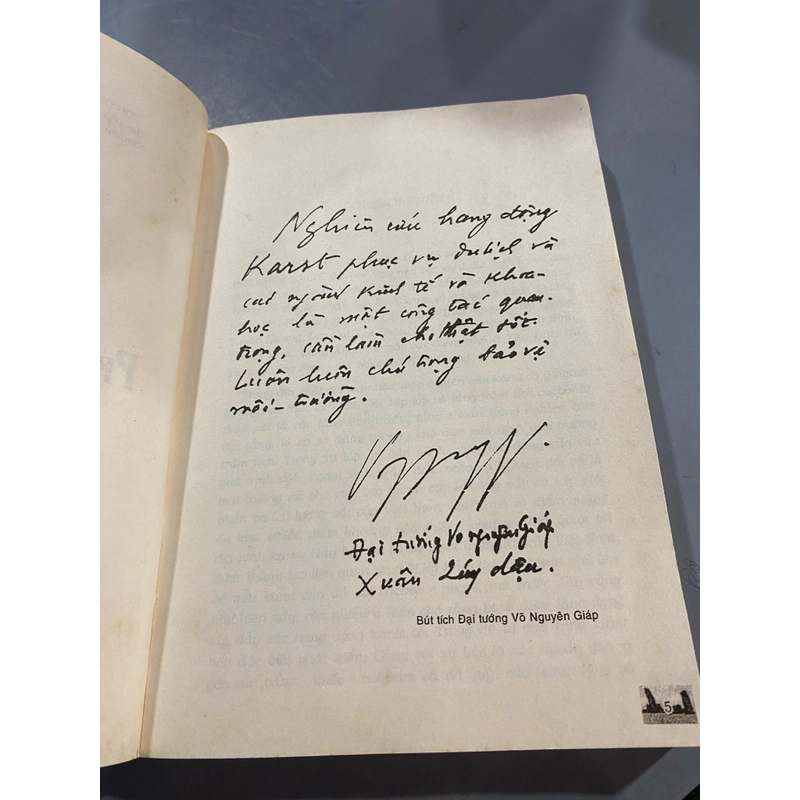 Nghiên cứu hang động
Karst phục vụ du lịch và
các ngành kinh tế và khoa-
học là một công tác quan-
trọng, cần làm cho thật tốt.
Luôn luôn chú trọng bảo vệ
môi-trường.
Đại tướng Võ Nguyên Giáp
Xuân Quý dậu.
Bút tích Đại tướng Võ Nguyên Giáp
5